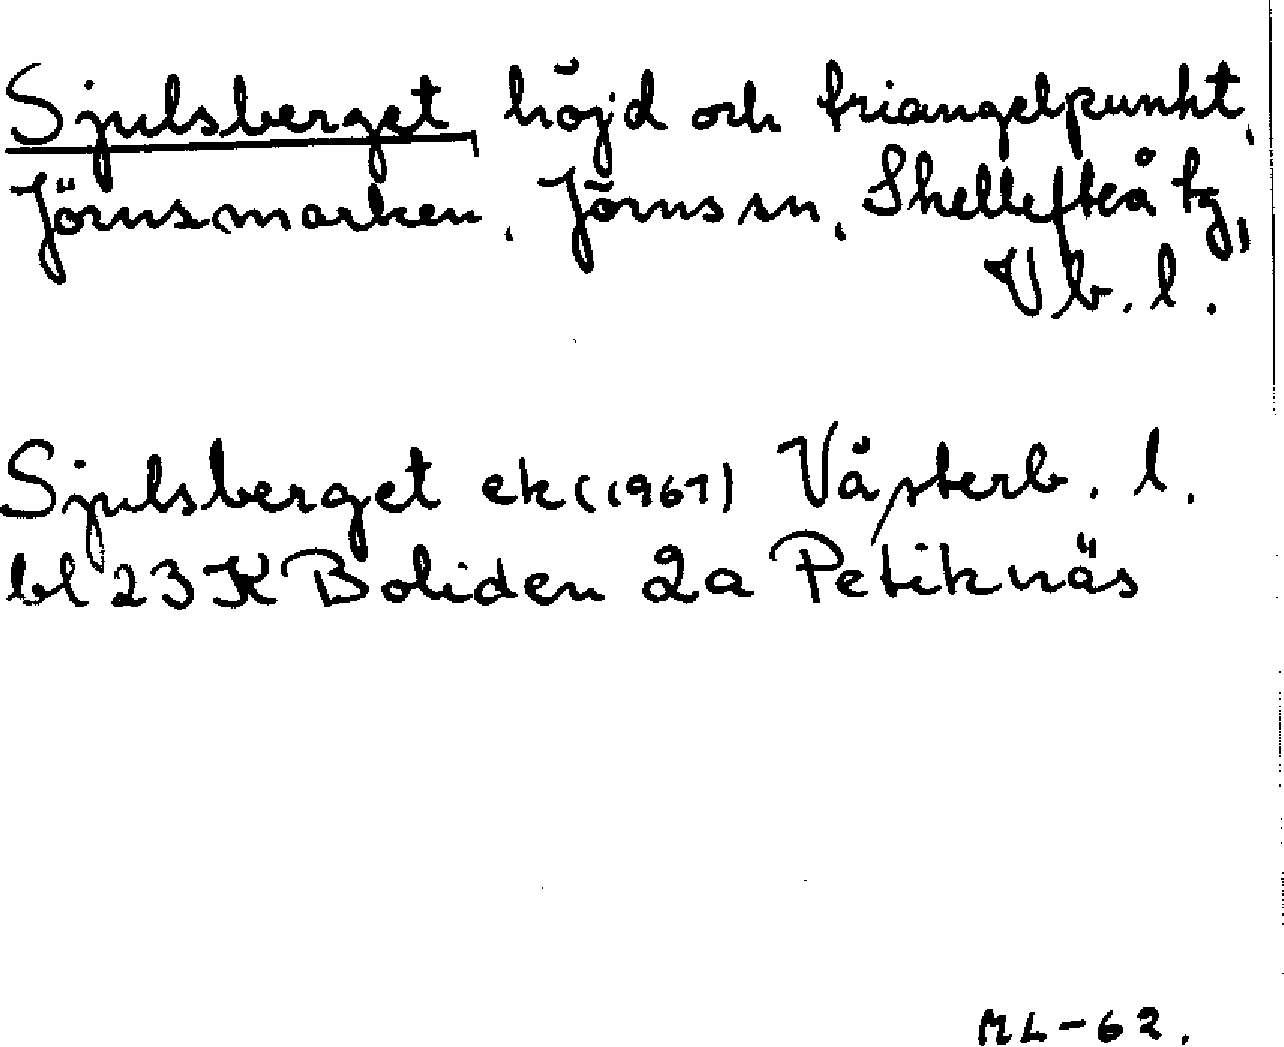 Sjulsberget, höjd och triangelpunkt,
Jörnsmarken, Jörns sn, Skellefteå tg,
Vb. l.
Sjulsberget ek (1961) Västerb. l.
bl 23 K Boliden 2a Petiknäs
ML-62.